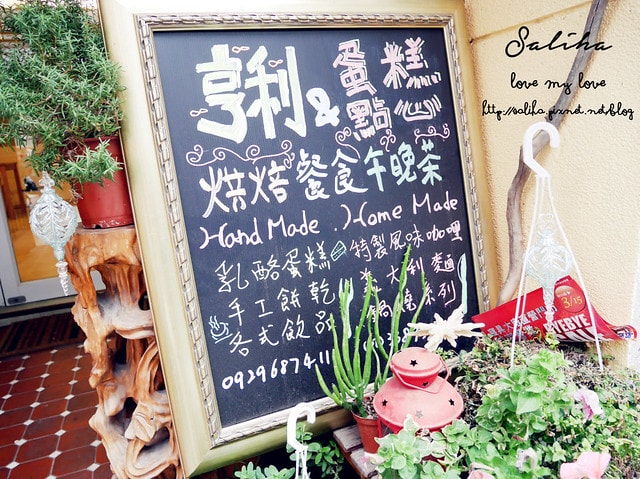 Saliha
love my love
http://saliha.pixnet.net/blog
亨利 & 蛋糕點心
烘焙 餐食 午晚茶
Hand Made . Home Made
乳酪蛋糕
手工餅乾
各式飲品
特製風味咖哩
大利麵
系列
0929687411
3/15
BYEBYE